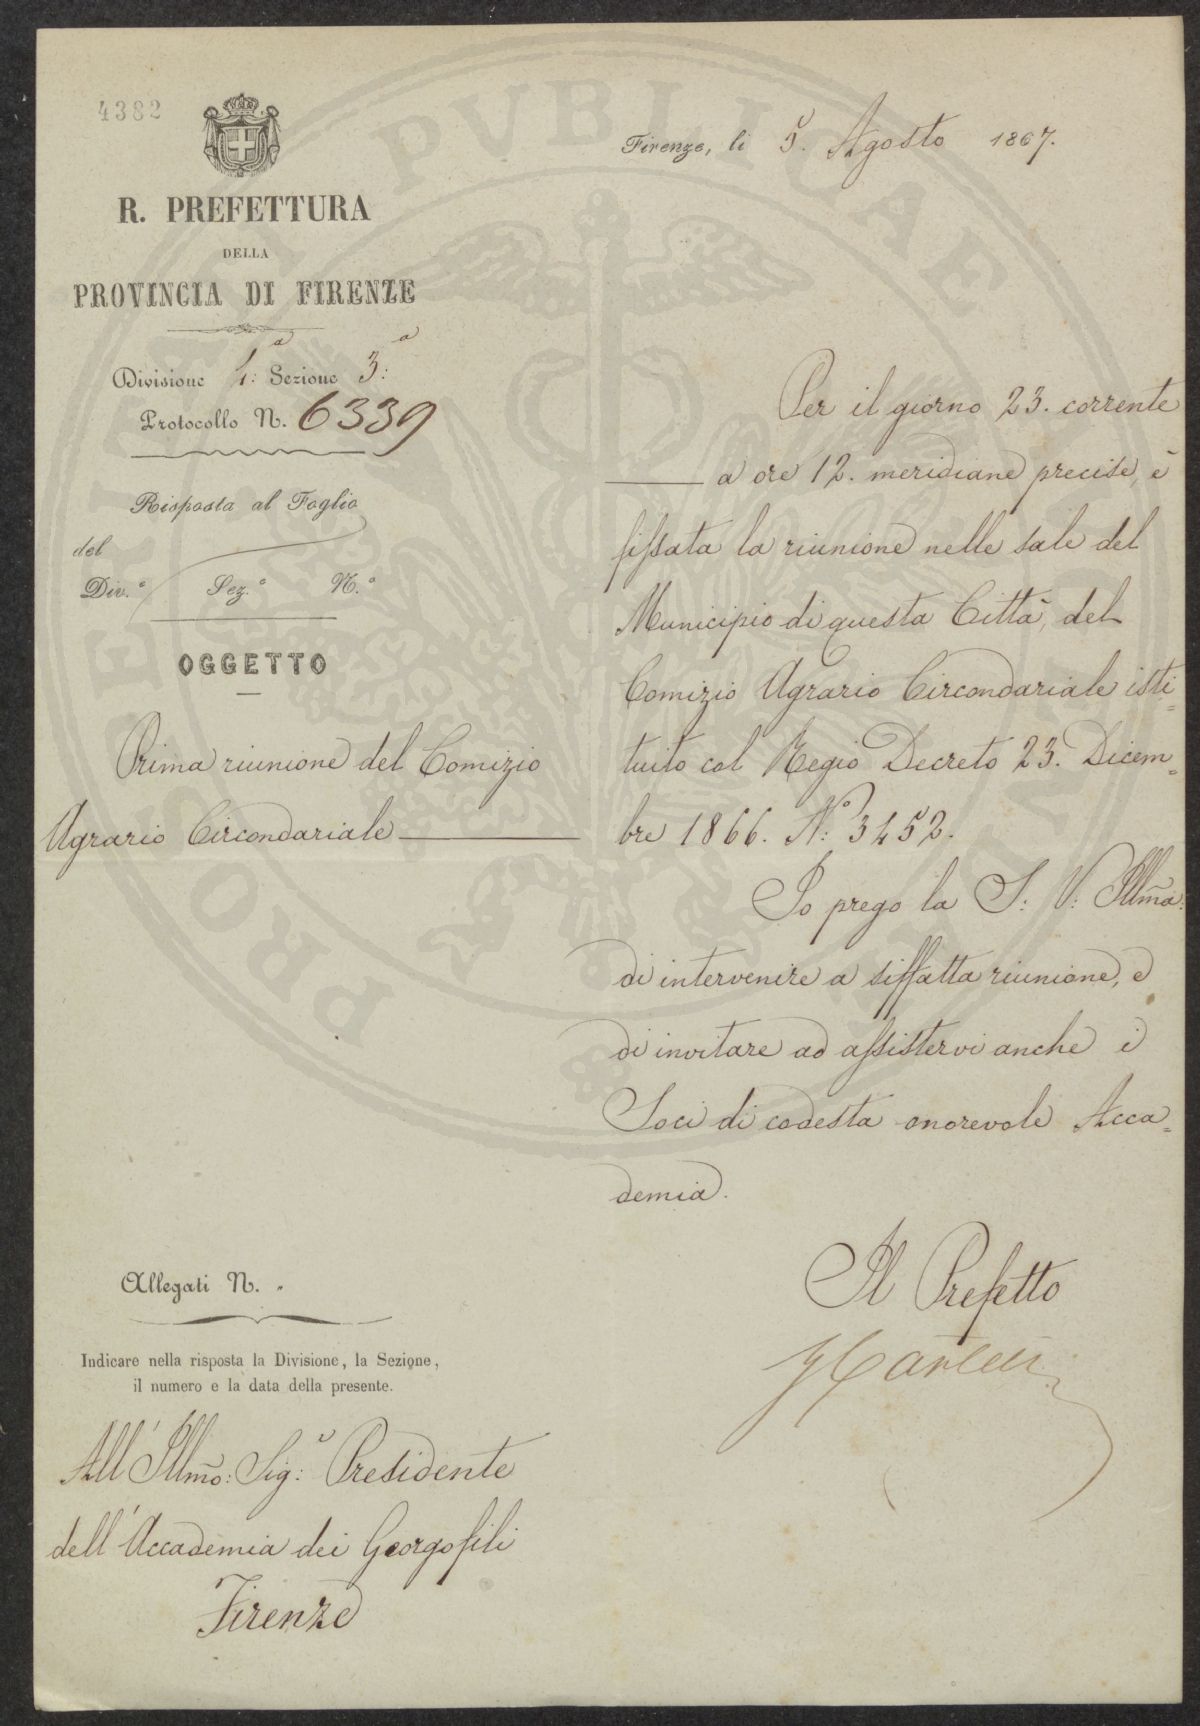 4382
R. PREFETTURA
DELLA
PROVINCIA DI FIRENZE
Divisione 4:ª Sezione 3:ª
Protocollo N. 6339
Risposta al Foglio
del
Div.e Sez.e N.o
OGGETTO
Prima riunione del Comizio
Agrario Circondariale
Allegati N. "
Indicare nella risposta la Divisione, la Sezione,
il numero e la data della presente.
All'Illmo: Sig:e Presidente
dell'Accademia dei Georgofili
Firenze
Firenze, li 5. Agosto 1867.
Per il giorno 23. corrente
a ore 12. meridiane precise, è
fissata la riunione nelle sale del
Municipio di questa Città, del
Comizio Agrario Circondariale isti=
tuito col Regio Decreto 23. Dicem=
bre 1866. N:o 3452.
Io prego la S: V: Illma:
di intervenire a siffatta riunione, e
di invitare ad assistervi anche i
Soci di codesta onorevole Acca=
demia.
Il Prefetto